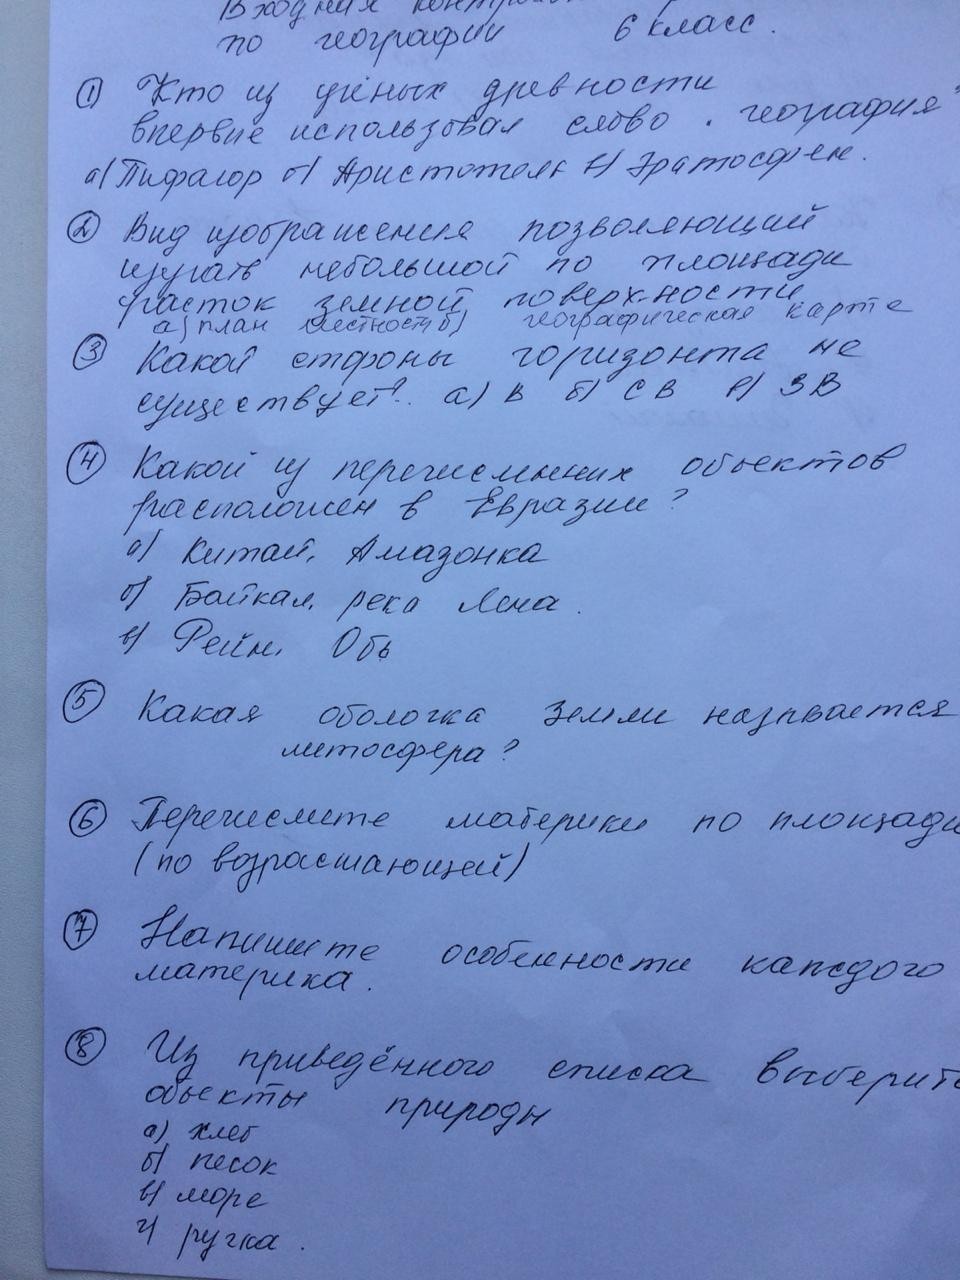 Входная контрольн
по географии 6 класс.
① Кто из учёных древности
впервые использовал слово "география"
а) Пифагор б) Аристотель в) Эратосфен.
② Вид изображения позволяющий
изучать небольшой по площади
участок земной поверхности
а) план местности б) географическая карта
③ Какой стороны горизонта не
существует? а) В б) СВ в) ЗВ
④ Какой из перечисленных объектов
расположен в Евразии?
а) Китай, Амазонка
б) Байкал, река Лена.
в) Рейн, Обь
⑤ Какая оболочка Земли называется
литосфера?
⑥ Перечислите материки по площади
(по возрастающей)
⑦ Напишите особенности каждого
материка.
⑧ Из приведённого списка выберите
объекты природы
а) хлеб
б) песок
в) море
г) ручка.